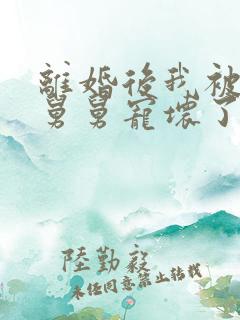 離婚後我被
舅舅寵壞了
陸勤毅
未任同意禁止轉載